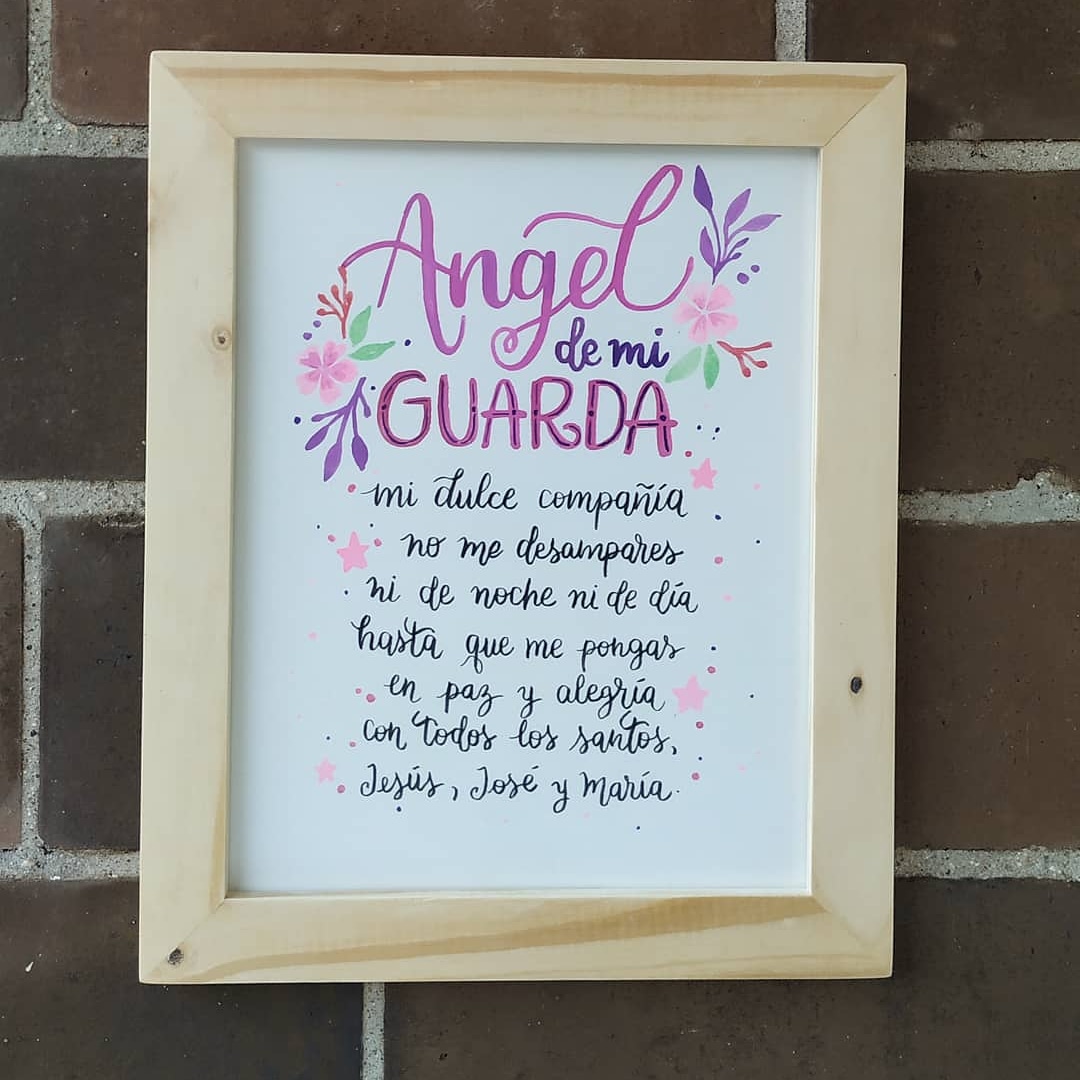 Angel
de mi
GUARDA
mi dulce compañía
no me desampares
ni de noche ni de día
hasta que me pongas
en paz y alegría
con todos los santos,
Jesús, José y María.